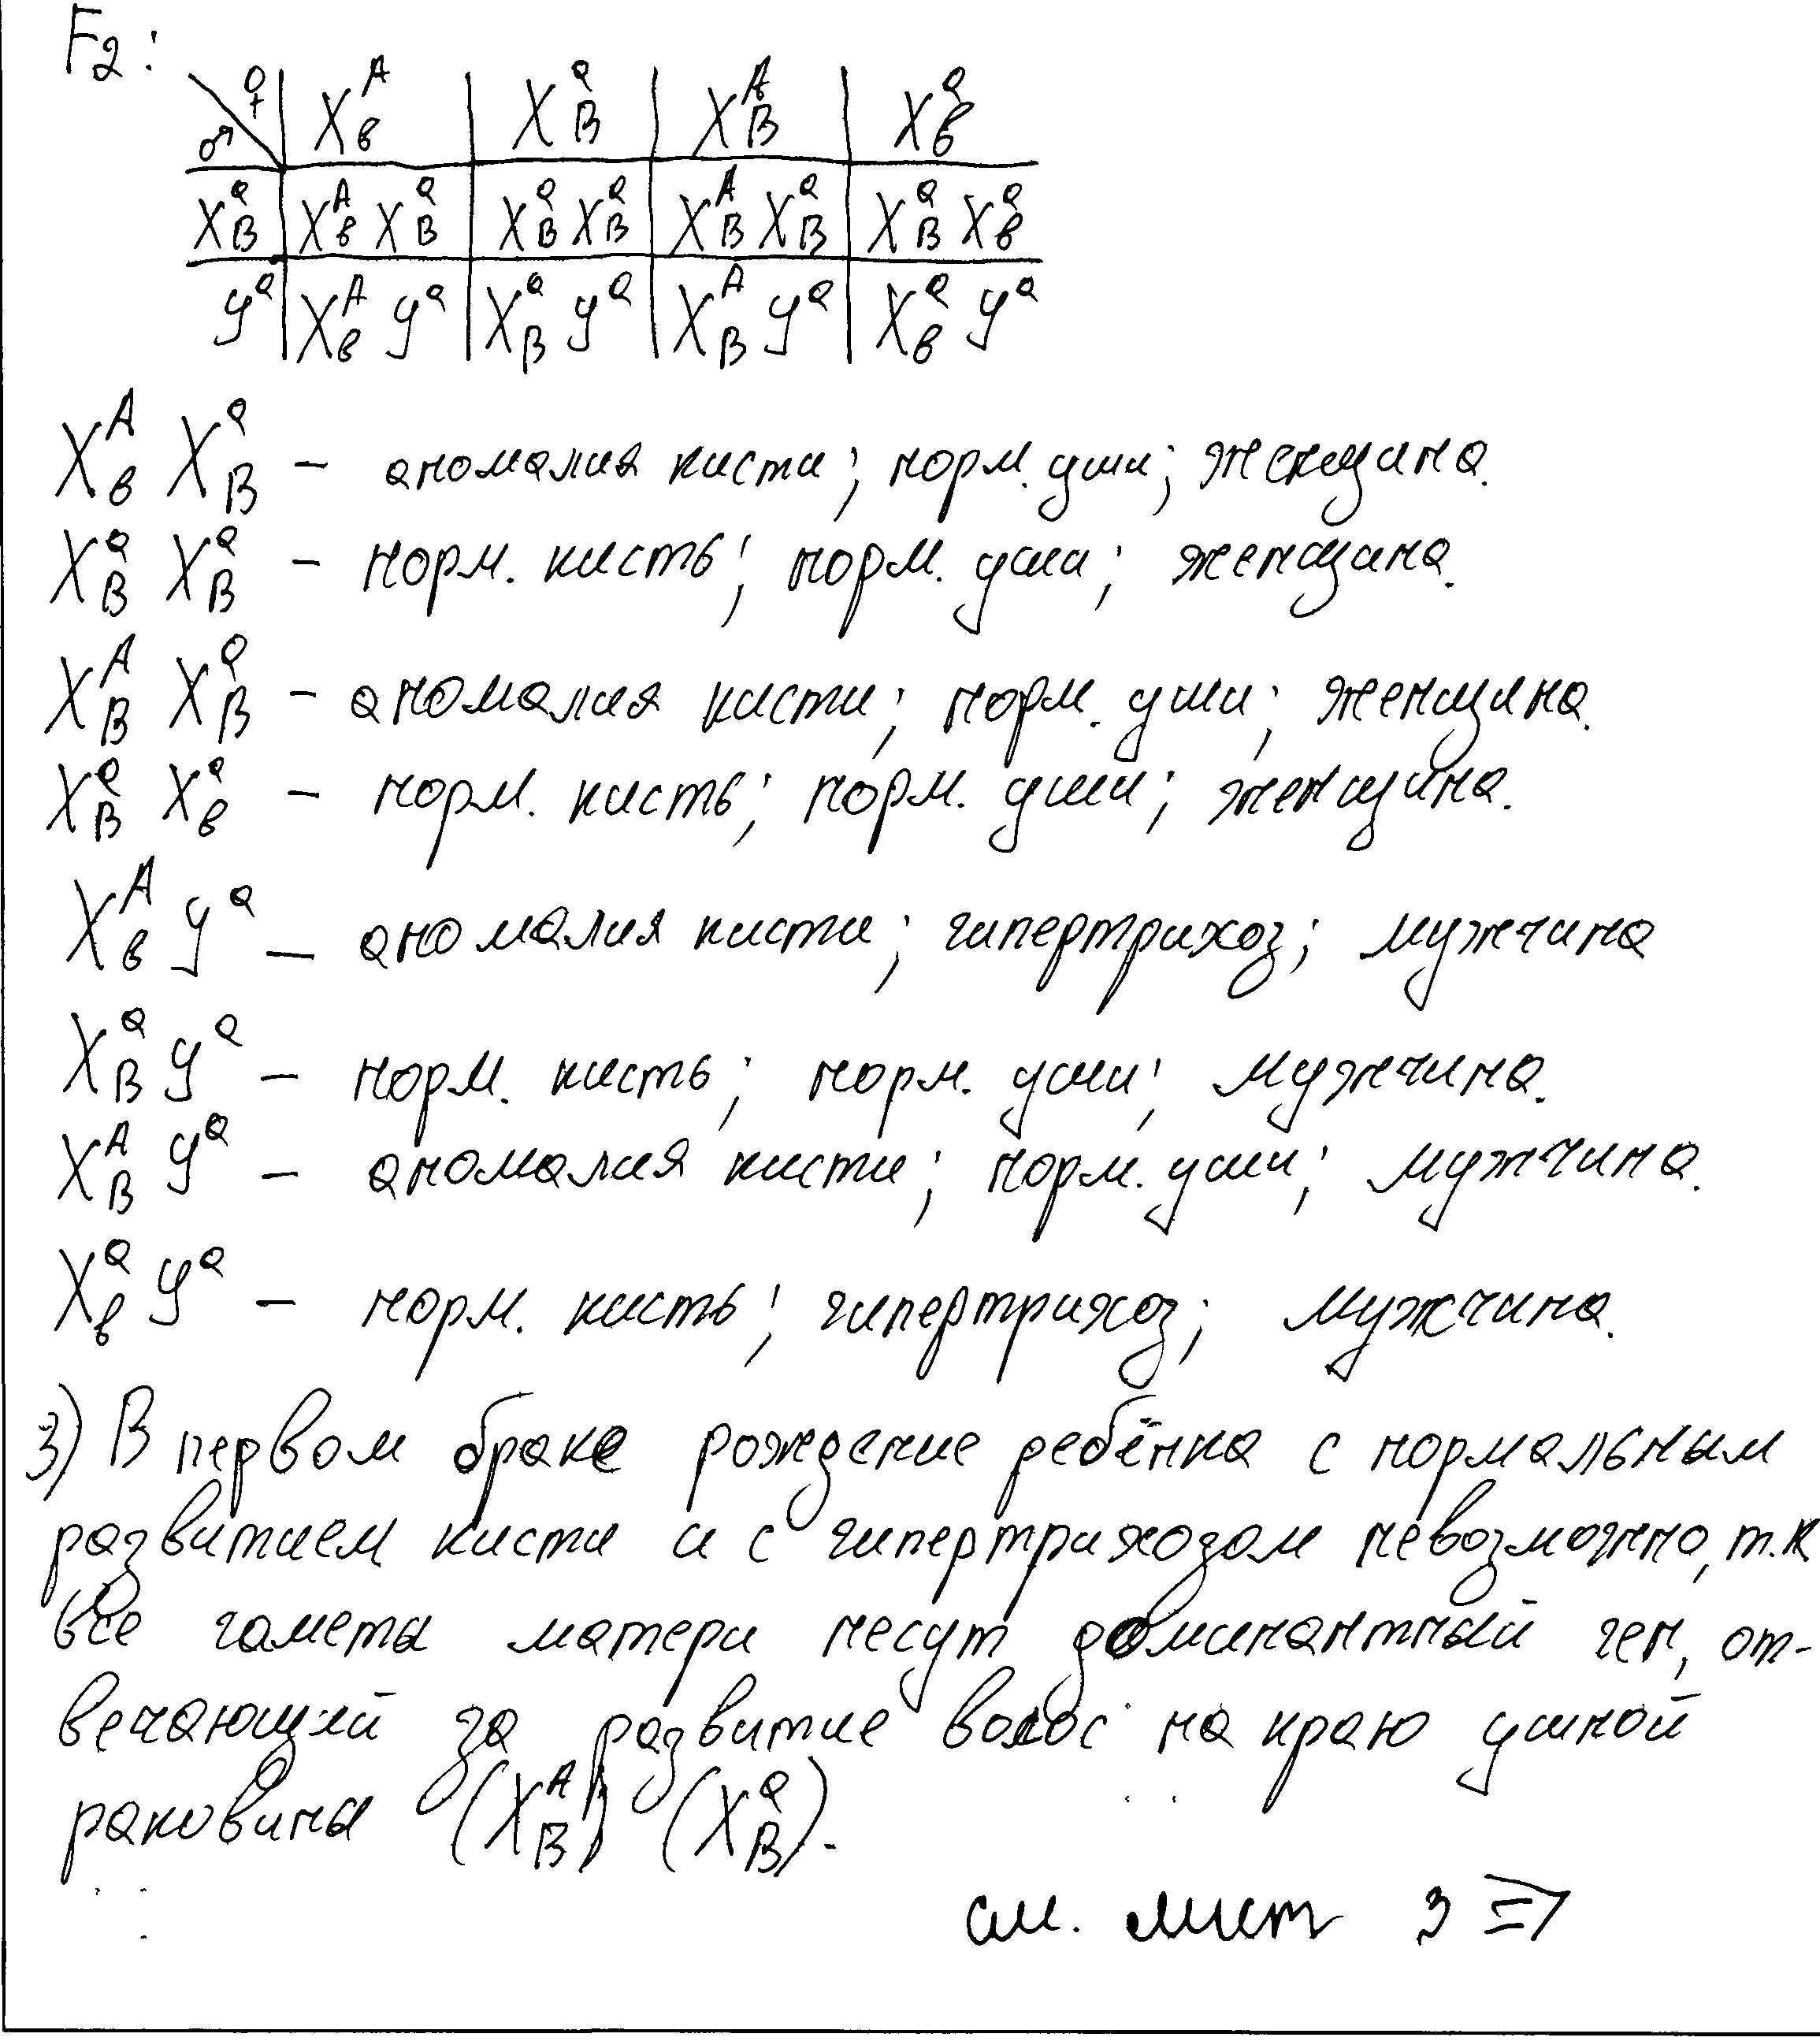 F2:
♂ ♀ X^A_в X^a_B X^A_B X^a_в
X^a_B X^A_в X^a_B X^a_B X^a_B X^A_B X^a_B X^a_B X^a_в
y^a X^A_в y^a X^a_B y^a X^A_B y^a X^a_в y^a
X^A_в X^a_B – аномалия кисти; норм. уши; женщина.
X^a_B X^a_B – норм. кисть; норм. уши; женщина.
X^A_B X^a_B – аномалия кисти; норм. уши; женщина.
X^a_B X^a_в – норм. кисть; норм. уши; женщина.
X^A_в y^a – аномалия кисти; гипертрихоз; мужчина
X^a_B y^a – норм. кисть; норм. уши; мужчина.
X^A_B y^a – аномалия кисти; норм. уши; мужчина.
X^a_в y^a – норм. кисть; гипертрихоз; мужчина.
3) В первом браке рождение ребёнка с нормальным
развитием кисти и с гипертрихозом невозможно, т.к
все гаметы матери несут доминантный ген, от-
вечающий за развитие волос на краю ушной
раковины (X^A_B) (X^a_B).
см. лист 3 ⇒